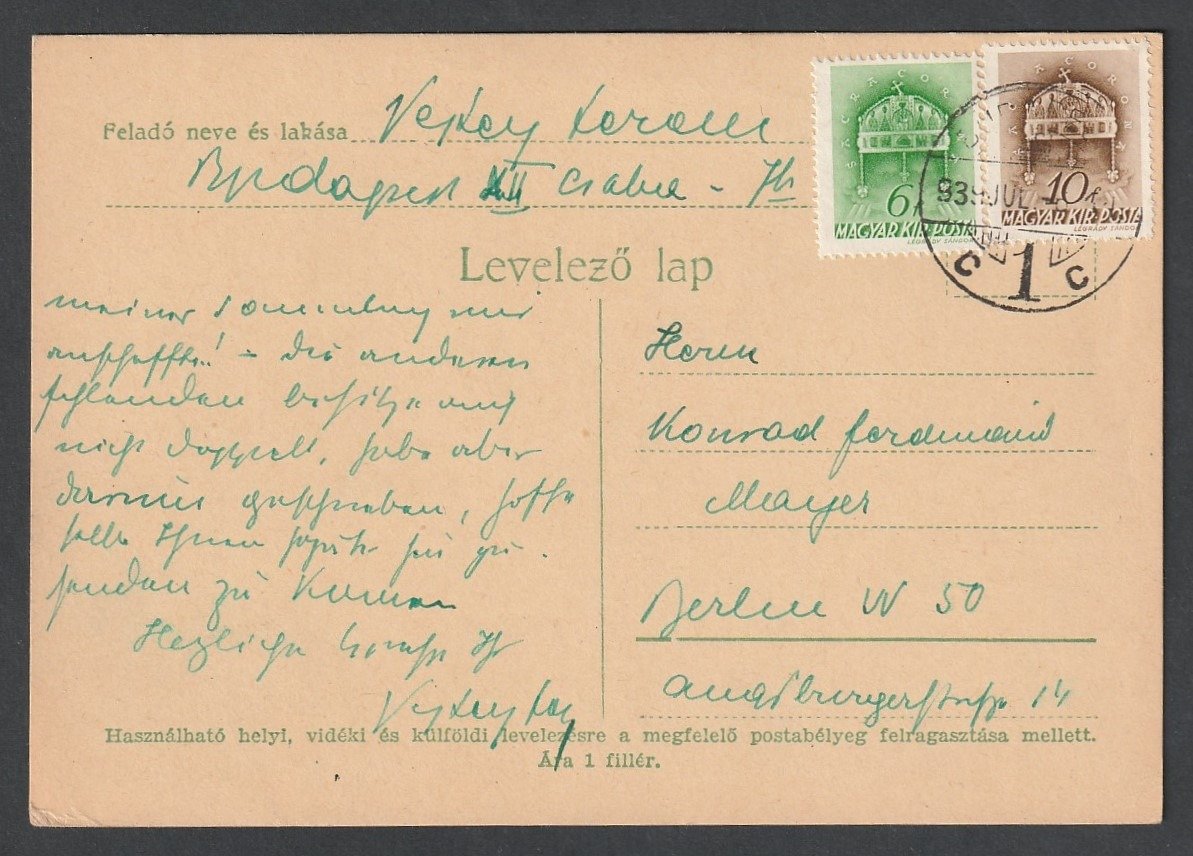 Feladó neve és lakása Vejtey Ferenc
Budapest XII Csaba - 7b
SACRA CORONA
6f
MAGYAR KIR. POSTA
LÉGRÁDY SÁNDOR
SACRA CORONA
10f
MAGYAR KIR. POSTA
LÉGRÁDY SÁNDOR
939 JUL
C 1 C
Levelező lap
meiner Sammlung mir
anschaffte! - die anderen
fehlenden besitze auch
nicht doppelt, habe aber
darum geschrieben, hoffe
selbe Ihnen
senden zu
Herzliche Grüsse Ihr
Herrn
Konrad Ferdinand
Mayer
Berlin W 50
Augsburgerstrasse 14
Használható helyi, vidéki és külföldi levelezésre a megfelelő postabélyeg felragasztása mellett.
Ára 1 fillér.